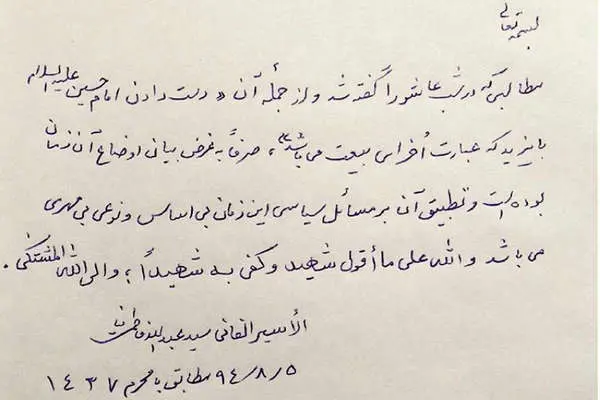 بسمه تعالی
مطالبی که در شب عاشورا گفته شد و از جمله آن « دست دادن امام حسین علیه السلام
با یزید که عبارت اُخرای بیعت می باشد »، صرفاً به غرض بیان اوضاع آن زمان
بوده است و تطبیق آن بر مسائل سیاسی این زمان بی اساس و نوعی بی مهری
می باشد و الله علی ما أقول شهید و کفی به شهیداً ؛ و الی الله المشتکی .
الأسیر الفانی سید عبدالله فاطمی نیا
۹۴/۸/۵ مطابق با محرم ۱۴۳۷